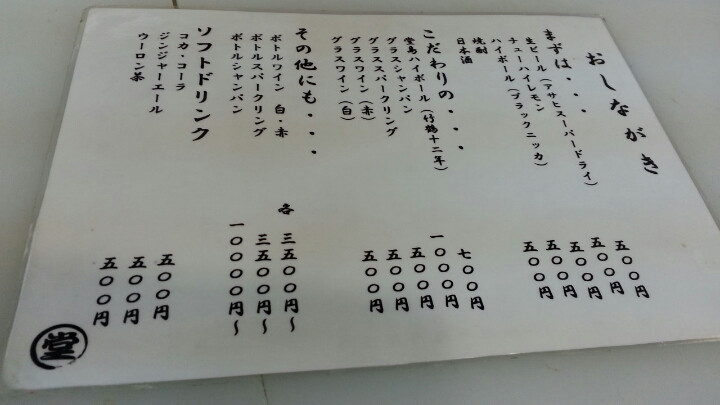 おしながき
まずは・・・
生ビール(アサヒスーパードライ) 五〇〇円
チューハイレモン 五〇〇円
ハイボール(ブラックニッカ) 五〇〇円
焼酎 五〇〇円
日本酒 五〇〇円
こだわりの・・・
堂島ハイボール(竹鶴十二年) 七〇〇円
グラスシャンパン 一〇〇〇円
グラススパークリング 五〇〇円
グラスワイン(赤) 五〇〇円
グラスワイン(白) 五〇〇円
その他にも・・・
ボトルワイン 白・赤 各 三五〇〇円～
ボトルスパークリング 三五〇〇円～
ボトルシャンパン 一〇〇〇〇円～
ソフトドリンク
コカ・コーラ 五〇〇円
ジンジャーエール 五〇〇円
ウーロン茶 五〇〇円
堂